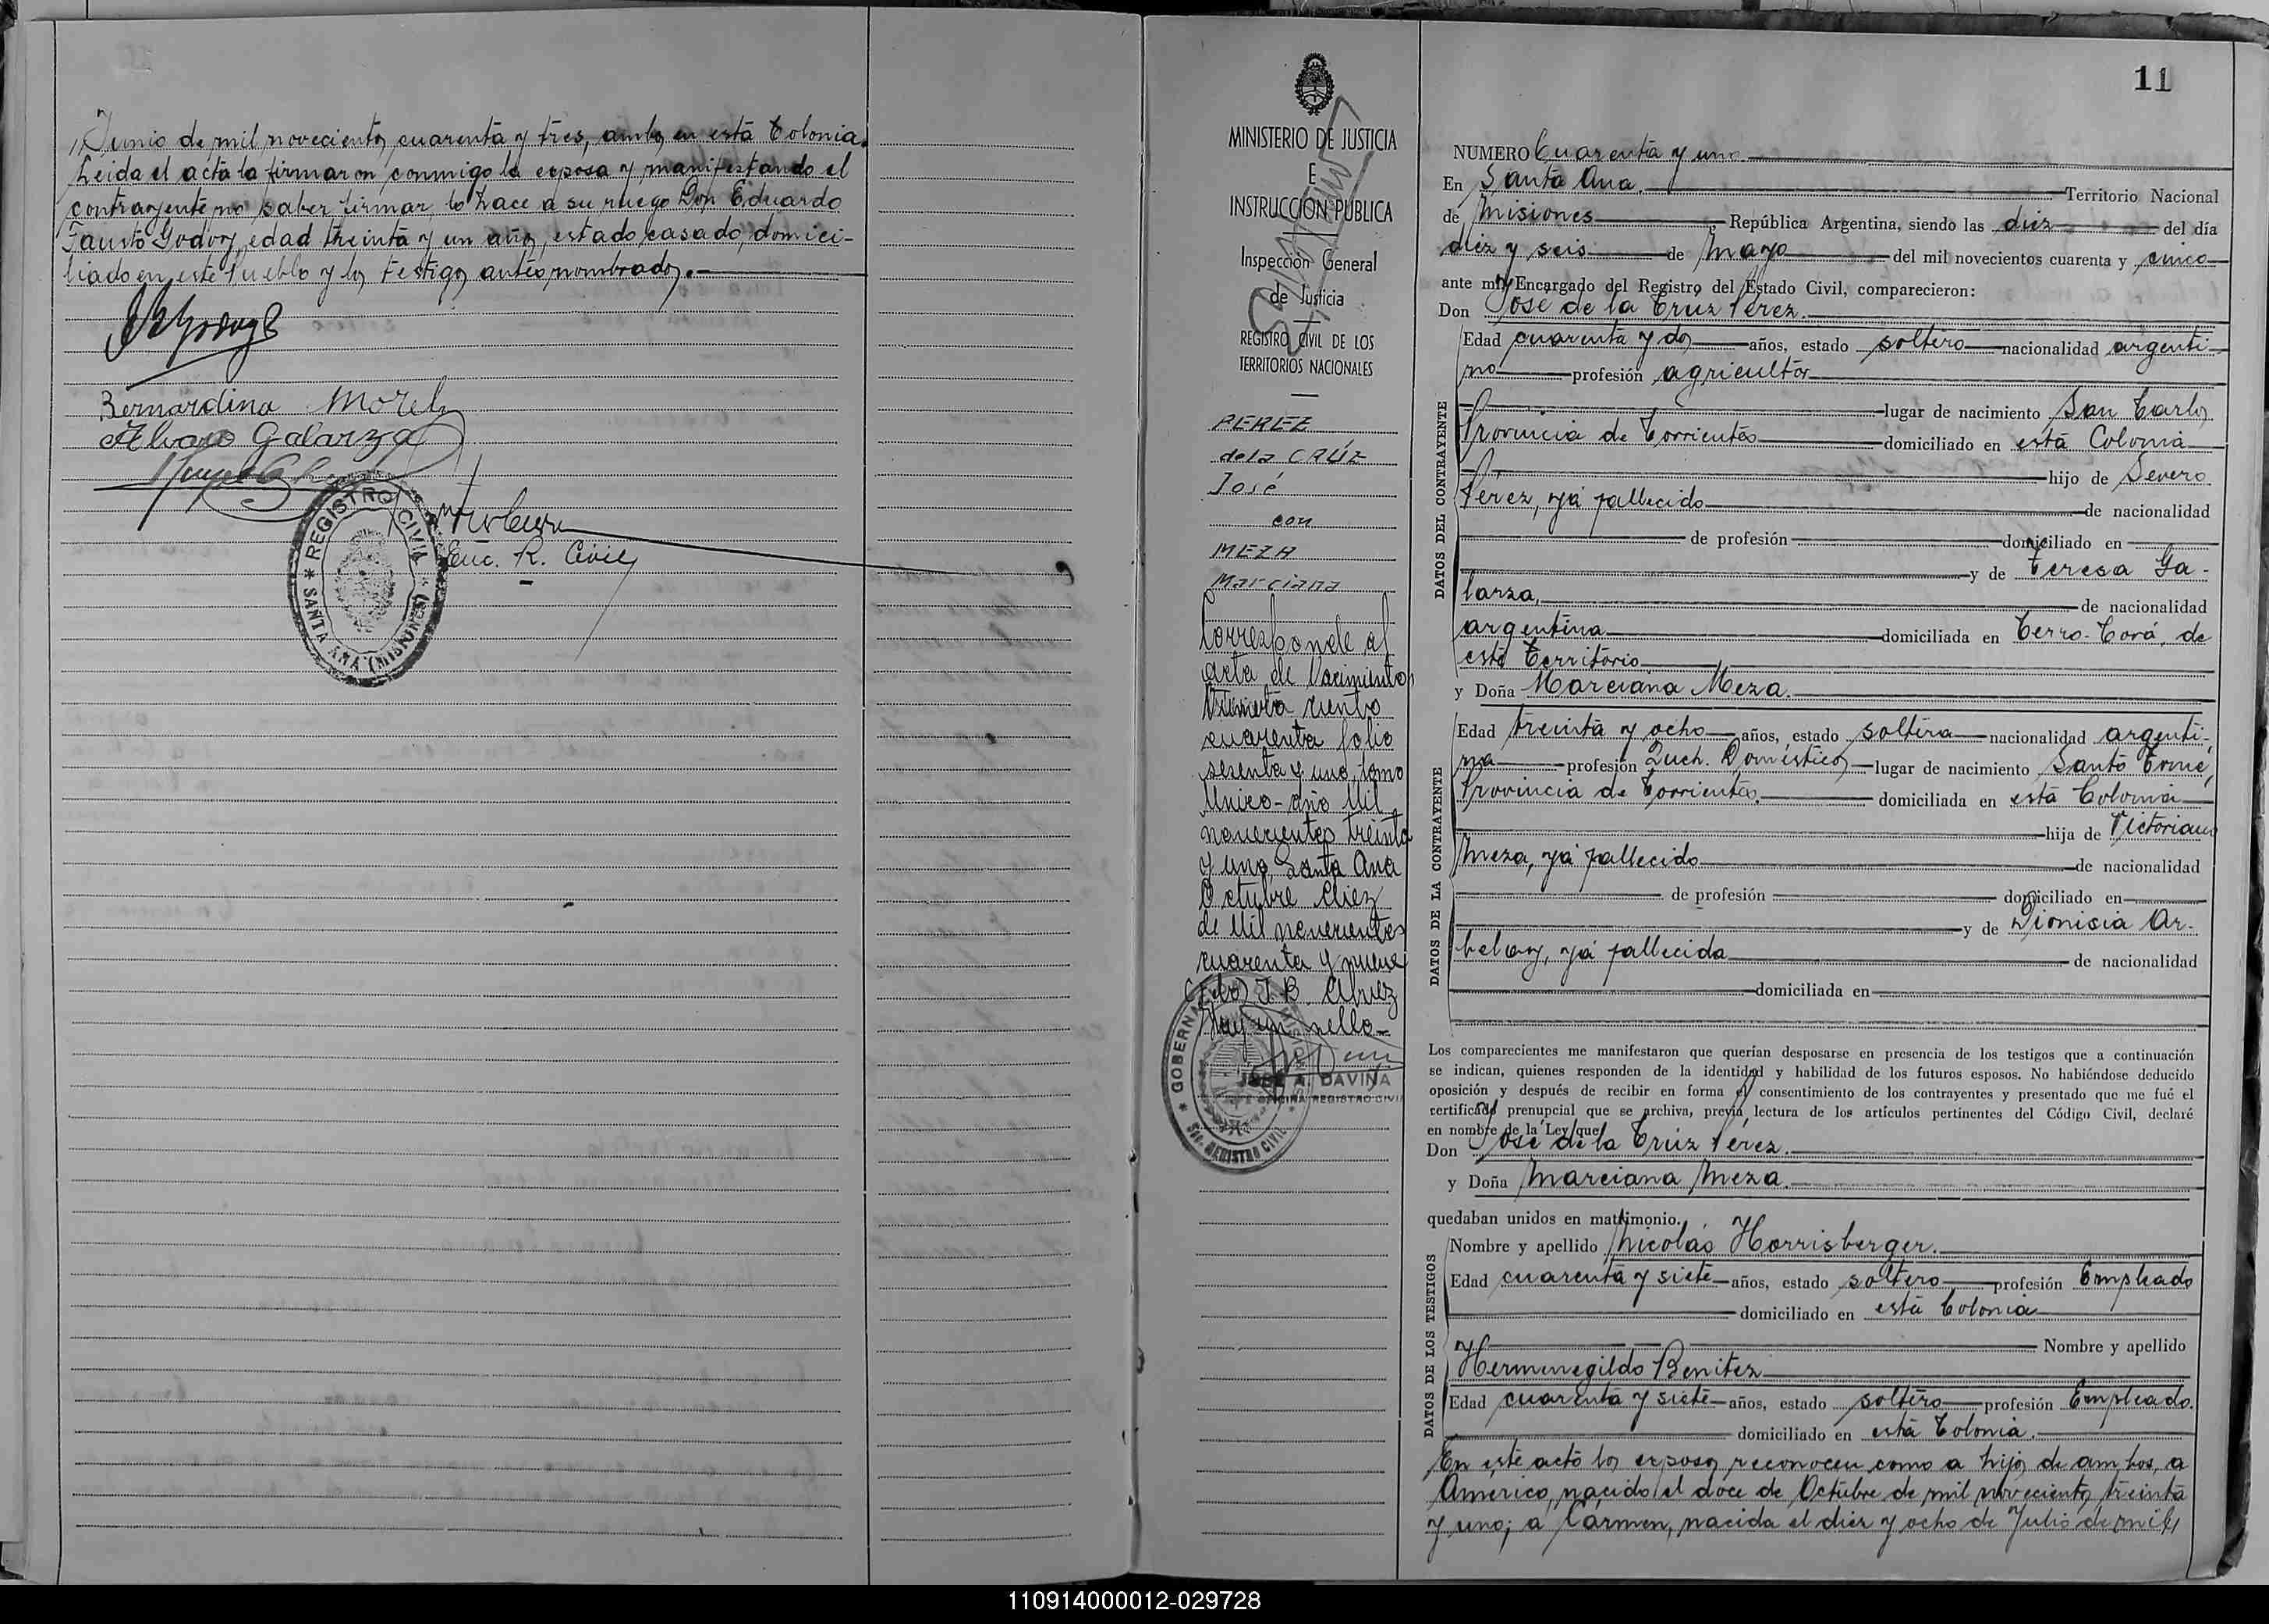 //Junio de mil novecientos cuarenta y tres, ambos en está Colonia.
Leida el acta la firmaron conmigo la esposa y manifestando el
contrayente no saber firmar, lo hace a su ruego Don Eduardo
Fausto Godoy, edad treinta y un años, estado casado, domici-
liado en este Pueblo y los testigos antes nombrados.—
Bernardina Morel
Alvaro Galarza
Enc. R. Civil
* REGISTRO CIVIL *
SANTA ANA (MISIONES)
MINISTERIO DE JUSTICIA
E
INSTRUCCIÓN PÚBLICA
Inspección General
de Justicia
REGISTRO CIVIL DE LOS
TERRITORIOS NACIONALES
PEREZ
de la CRÚZ
José
con
MEZA
Marciana
Corresponde al
acta de Nacimiento
Número ciento
cuarenta folio
sesenta y uno, tomo
Unico - año Mil
novecientos treinta
y uno, Santa Ana
Octubre diez
de Mil novecientos
cuarenta y nueve
(Fdo) J. B.
Hay un sello—
JOSE A. DAVIÑA
JEFE OFICINA REGISTRO CIVIL
11
NUMERO Cuarenta y uno
En Santa Ana. Territorio Nacional
de Misiones, República Argentina, siendo las diez del día
diez y seis de Mayo del mil novecientos cuarenta y cinco
ante mí, Encargado del Registro del Estado Civil, comparecieron:
Don José de la Crúz Pérez.
DATOS DEL CONTRAYENTE
Edad cuarenta y dos años, estado soltero nacionalidad argenti-
no profesión agricultor
lugar de nacimiento San Carlos
Provincia de Corrientes domiciliado en está Colonia
hijo de Severo
Pérez, yá fallecido de nacionalidad
de profesión domiciliado en
y de Teresa Ga-
larza, de nacionalidad
argentina domiciliada en Cerro-Corá, de
este Territorio
y Doña Marciana Meza.
DATOS DE LA CONTRAYENTE
Edad treinta y ocho años, estado soltera nacionalidad argenti-
na profesión Queh. Domésticos lugar de nacimiento Santo Tomé,
Provincia de Corrientes. domiciliada en está Colonia
hija de Victoriano
Meza, yá fallecido de nacionalidad
de profesión domiciliado en
y de Dionisia Ar-
belay, yá fallecida de nacionalidad
domiciliada en
Los comparecientes me manifestaron que querían desposarse en presencia de los testigos que a continuación
se indican, quienes responden de la identidad y habilidad de los futuros esposos. No habiéndose deducido
oposición y después de recibir en forma el consentimiento de los contrayentes y presentado que me fué el
certificado prenupcial que se archiva, previa lectura de los artículos pertinentes del Código Civil, declaré
en nombre de la Ley que
Don José de la Crúz Pérez.
y Doña Marciana Meza.
quedaban unidos en matrimonio.
DATOS DE LOS TESTIGOS
Nombre y apellido Nicolás Horrisberger.
Edad cuarenta y siete años, estado soltero profesión Empleado
domiciliado en está Colonia
Nombre y apellido
Hermenegildo Benitez
Edad cuarenta y siete años, estado soltero profesión Empleado.
domiciliado en está Colonia.
En este acto los esposos reconocen como a hijos de ambos, a
Americo, nacido el doce de Octubre de mil novecientos treinta
y uno; a Carmen, nacida el diez y ocho de Julio de mil//
110914000012-029728